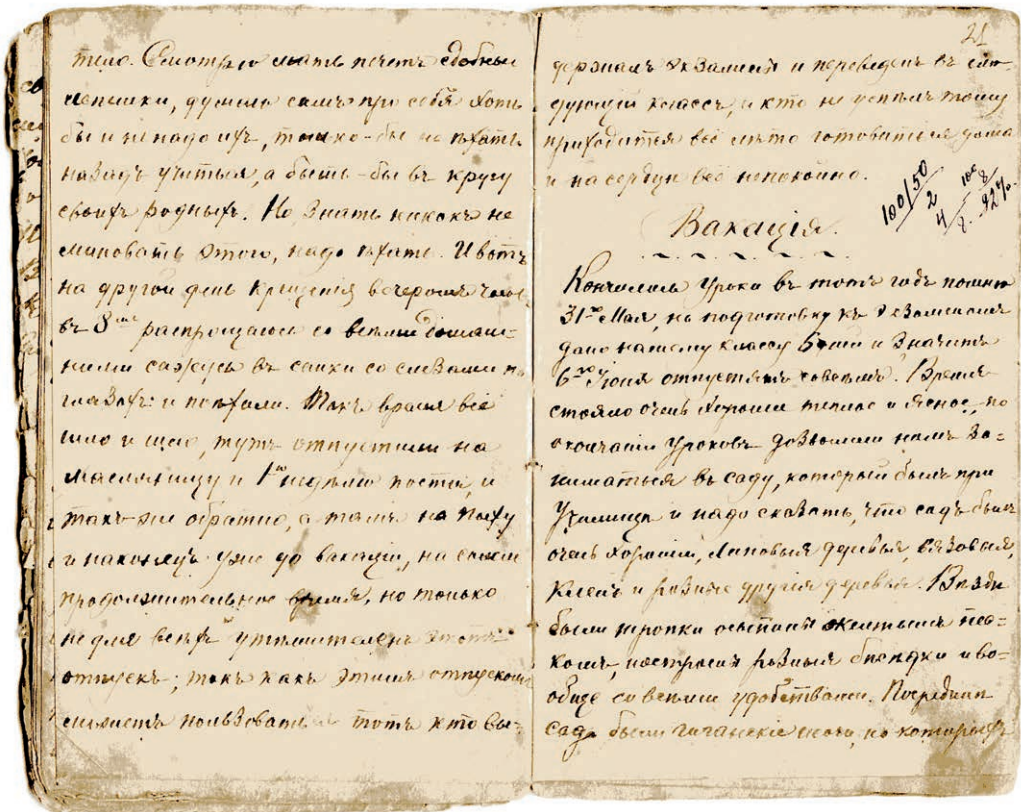 тило. Смотрю мать печетъ сдобныя
лепешки, думаю самъ при себѣ хоть
бы и не надо ихъ, только-бы не ѣхать
назадъ учиться, а быть-бы въ кругу
своихъ родныхъ. Но знать никакъ не
миновать этого, надо ѣхать. И вотъ
на другой день Крещенія вечеромъ часовъ
въ 8мь распрощаюсь со всѣми домаш-
ними сажусь въ санки со слезами на
глазахъ и поѣхали. Такъ время всё
шло и шло, тутъ отпустили на
масляницу и 1ю недѣлю поста, и
такъ-же обратно, а тамъ на Пасху
и наконецъ уже до вакаціи, на самое
продолжительное время, но только
не для всѣхъ утѣшителенъ этотъ
отпускъ; такъ какъ этимъ отпускомъ
пользоваться тотъ кто вы-
21
держалъ экзаменъ и переведенъ въ слѣ-
дующій классъ, и кто не успѣлъ тому
приходится всё лѣто готовиться дома
и на сердцѣ всё непокойно.
100/50
2
4
100
8
8. 92%.
Вакація.
Кончились уроки въ тотъ годъ помню
31го Мая, на подготовку къ экзаменамъ
дано нашему классу 5 дней и значитъ
6го Іюня отпустятъ совсѣмъ. Время
стояло очень хорошее теплое и ясное, по
окончаніи уроковъ дозволили намъ за-
ниматься въ саду, который былъ при
Училищѣ и надо сказать, что садъ былъ
очень хорошій, Липовыя деревья, вязовыя,
Кленъ и разные другія деревья. Вездѣ
были тропки осыпаны желтымъ пес-
комъ, построены разныя бесѣдки и во-
обще со всѣми удобствами. Посредине
сада были гиганскіе шаги, на которыхъ